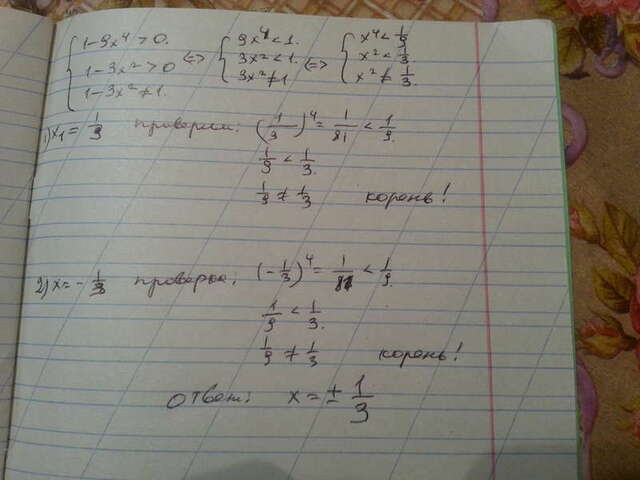 1-9x⁴>0. 9x⁴<1. x⁴<1/9
1-3x²>0 <=> 3x²<1. <=> x²<1/3
1-3x²≠1. 3x²≠1 x²≠1/3.
1) x₁=1/3 проверим: (1/3)⁴=1/81<1/9.
1/9<1/3.
1/9≠1/3 корень!
2) x=-1/3 проверка: (-1/3)⁴=1/81<1/9.
1/9<1/3.
1/9≠1/3 корень!
Ответ: x=±1/3